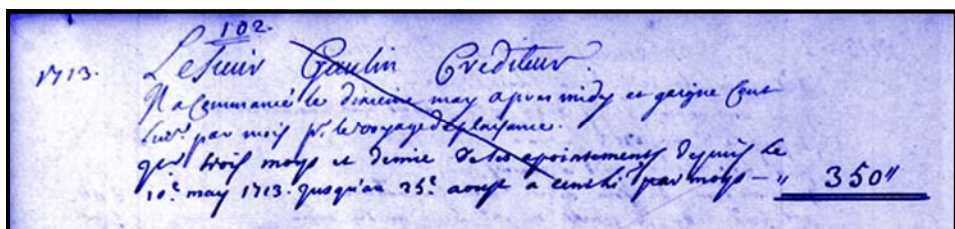 102.
1713. Le Sieur Gaulin Crediteur.
Il a Commancé le dixieme may apres midy et gaigne Cent
par mois pr. le voyage de plaisance.
trois moys et demie de ses apointements depuis le
10e. may 1713. jusqu'au 25e. aoust a cent # par moys — " 350"